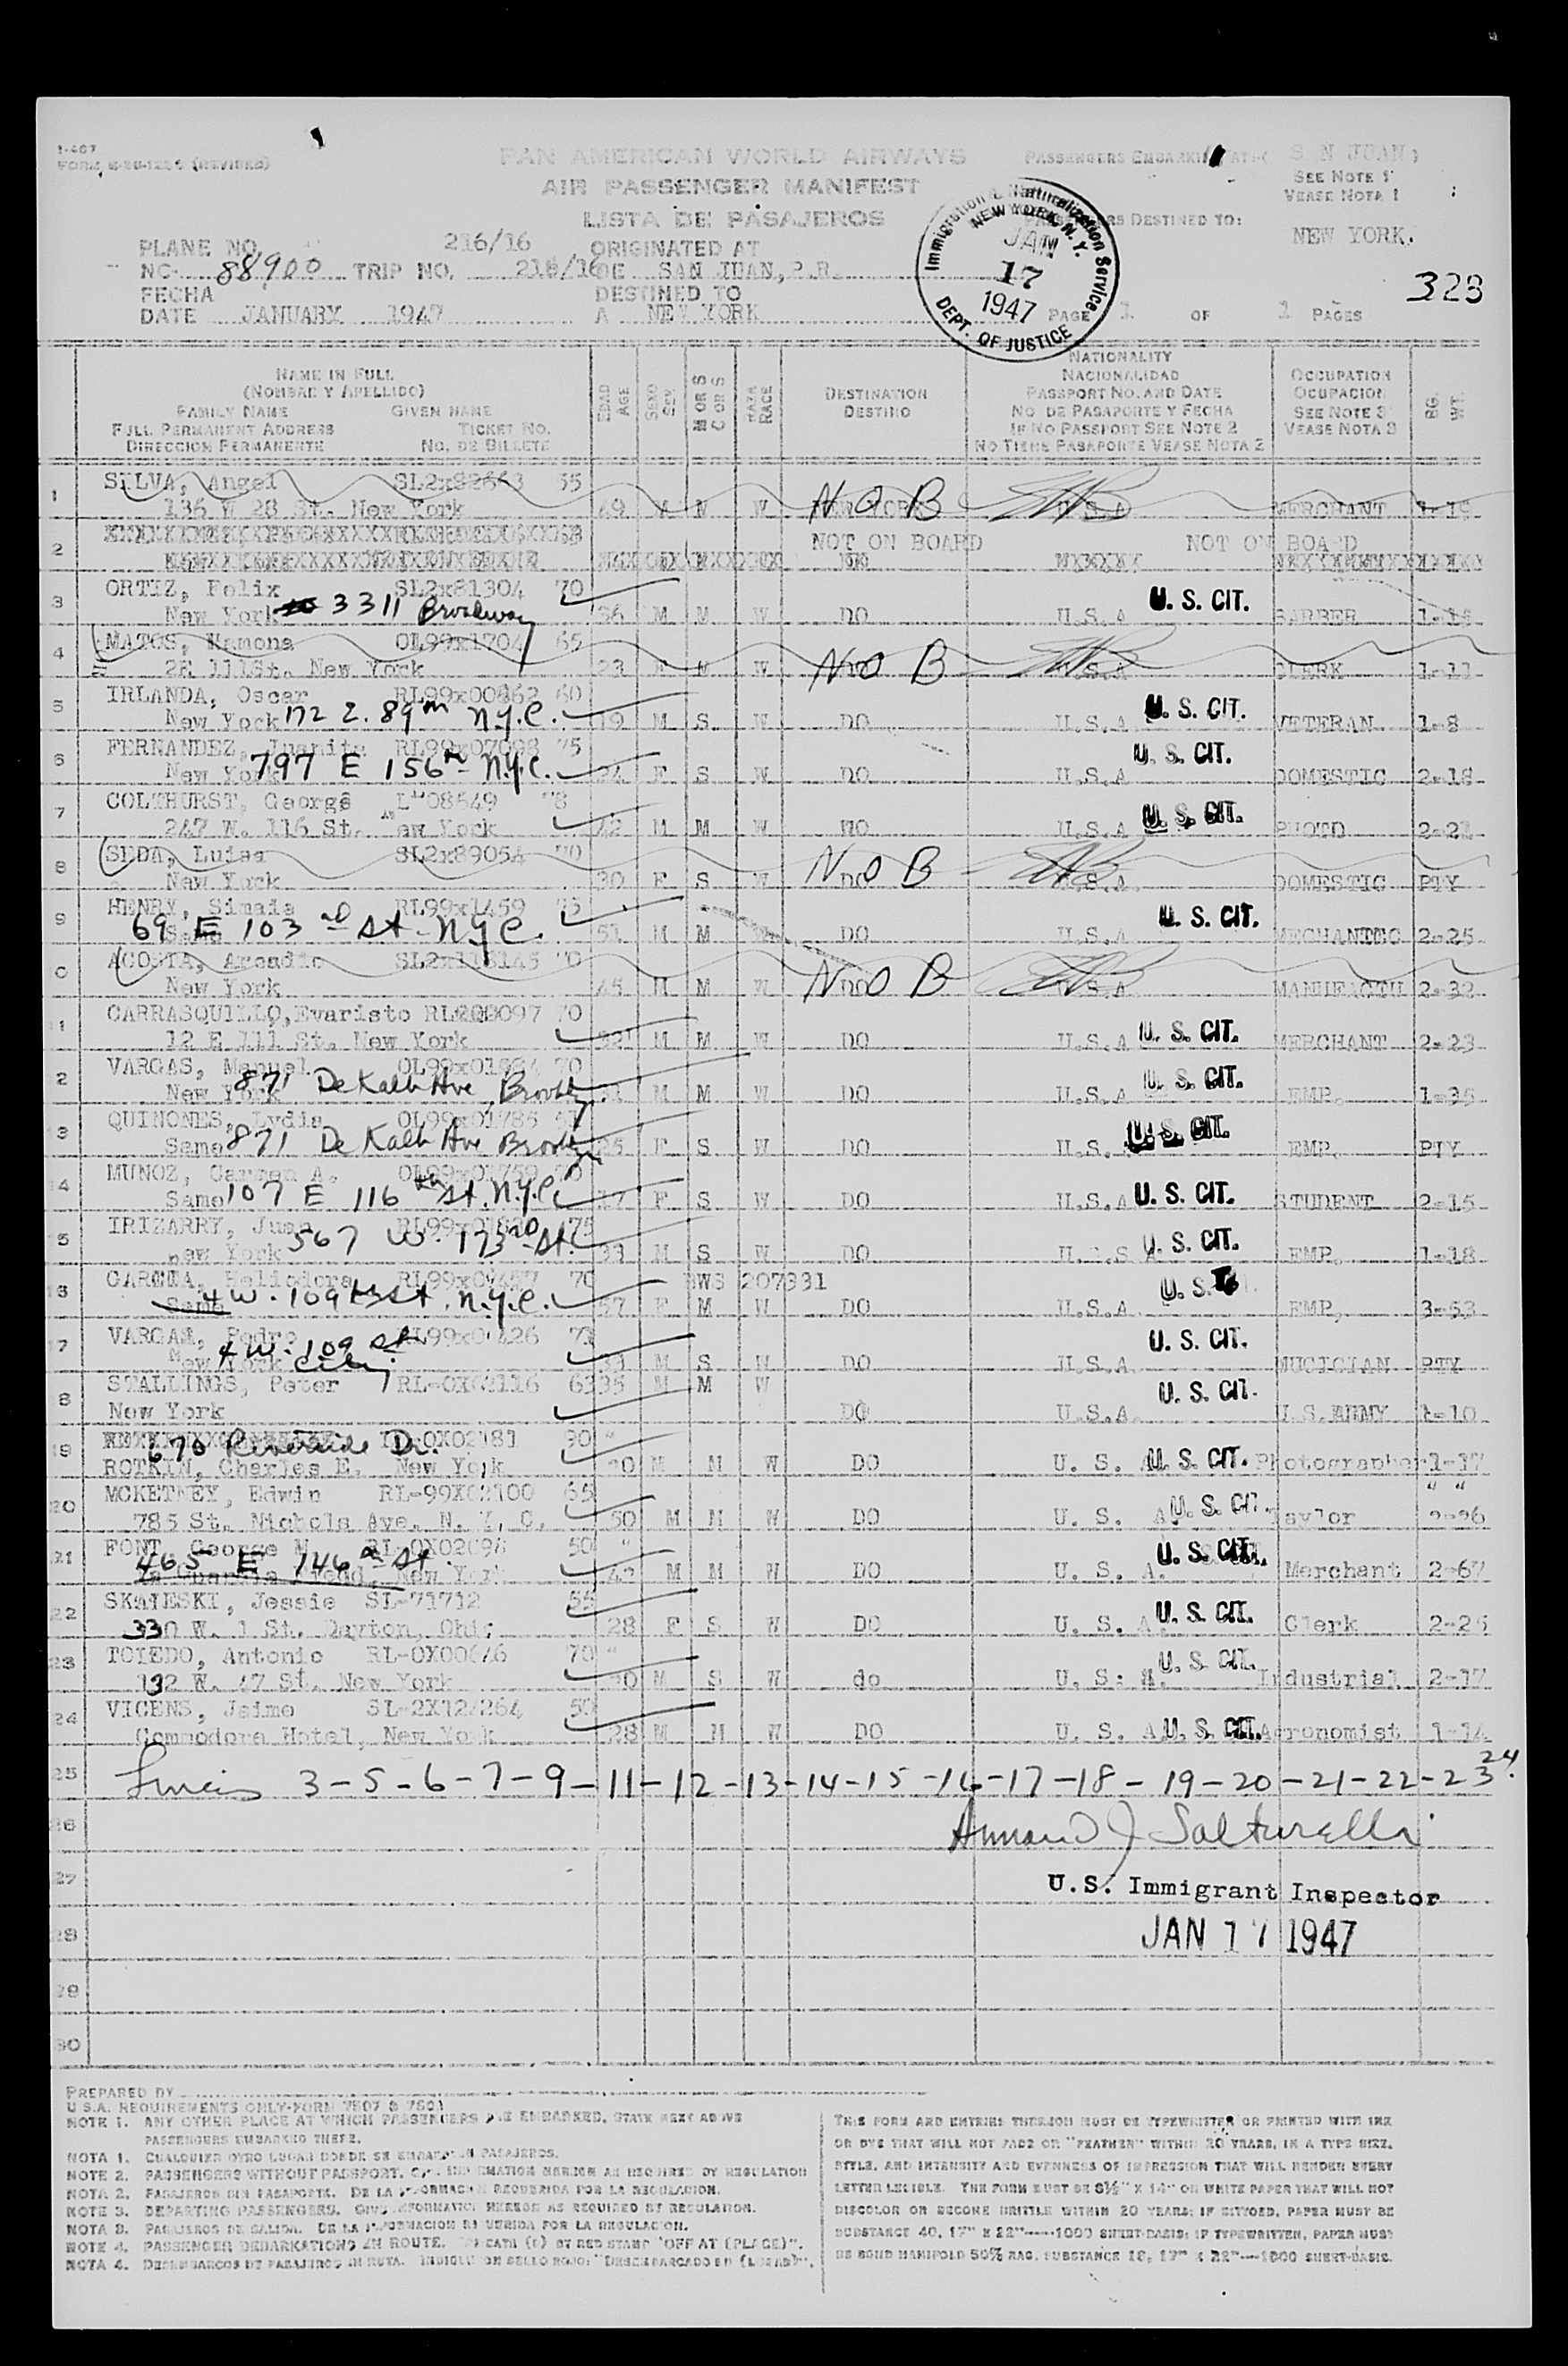 I-467
PAN AMERICAN WORLD AIRWAYS
AIR PASSENGER MANIFEST
LISTA DE PASAJEROS
PASSENGERS EMBARKING AT: SAN JUAN,
SEE NOTE 1
VEASE NOTA 1
DESTINED TO:
NEW YORK.
Immigration & Naturalization Service
NEW YORK, N.Y.
JAN
17
1947
DEPT. OF JUSTICE
323
PLANE NO. 216/16 ORIGINATED AT
NC- 88900 TRIP NO. 218/16 DE SAN JUAN, P.R.
FECHA DESTINED TO
DATE JANUARY 1947 A NEW YORK PAGE 1 OF 1 PAGES
NAME IN FULL
(NOMBRE Y APELLIDO)
FAMILY NAME GIVEN NAME
FULL PERMANENT ADDRESS TICKET NO.
DIRECCION PERMANENTE NO. DE BILLETE
EDAD AGE
SEXO SEX
M OR S C OR S
RAZA RACE
DESTINATION
DESTINO
NATIONALITY
NACIONALIDAD
PASSPORT NO. AND DATE
NO. DE PASAPORTE Y FECHA
IF NO PASSPORT SEE NOTE 2
NO TIENE PASAPORTE VEASE NOTA 2
OCCUPATION
OCUPACION
SEE NOTE 3
VEASE NOTA 3
BG. WT.
1 SILVA, Angel 55
136 W 28 St. New York 49 M M W N O B U.S.A MERCHANT 1-19
2 NOT ON BOARD NOT ON BOARD
3 ORTIZ, Felix SL2x81304 70
New York 3311 Broadway 36 M M W DO U.S.A U. S. CIT. BARBER
4 MATOS, Ramona OL99x1704 65
2E 111St. New York 23 F M W N O B U.S.A CLERK 1-11
5 IRLANDA, Oscar RL99x00862 60
New York 172 E. 89th N.Y.C. 19 M S W DO U.S.A U. S. CIT. VETERAN 1-8
6 FERNANDEZ, Juanita RL99x07098 75
New York 797 E 156th N.Y.C. F S W DO U.S.A U. S. CIT. DOMESTIC 2-18
7 COLTHURST, George 08649 78
247 W. 116 St. New York 42 M M W U.S.A U. S. CIT. PHOTO
8 SEDA, Luisa SL2x89054 70
New York 30 F S W N O B U.S.A DOMESTIC PTY
9 HENRY, Simaia RL99x1459 75
Same 69 E 103rd St. N.Y.C. 51 M M DO U.S.A U. S. CIT. 2-25
0 ACOSTA, Arcadio SL2x118145 70
New York 45 M M W N O B U.S.A 2-32
11 CARRASQUILLO, Evaristo 70
12 E 111 St. New York M M W DO U.S.A U. S. CIT. MERCHANT 2-23
2 VARGAS, Manuel 70
New York 871 DeKalb Ave Brooklyn M M W DO U.S.A U. S. CIT. EMP. 1-35
13 QUINONES, Lydia OL99x01785
Same 871 DeKalb Ave Brooklyn F S W DO U.S. U. S. CIT. EMP. PTY
14 MUNOZ, Carmen A. OL99x01759
Same 107 E 116th St. N.Y.C. F S W DO U.S.A U. S. CIT. STUDENT 2-15
15 IRIZARRY, Juan 75
New York 567 W. 173rd St. 33 M S W DO U.S.A U. S. CIT. EMP. 1-18
16 GARCIA, Heliodora 70 207331
Same 4 W. 109th St. N.Y.C. 57 F M W DO U.S.A EMP. 3-53
17 VARGAS, Pedro
New York 4 W. 109 St City M S W DO U.S.A U. S. CIT. MUCICIAN PTY
8 STALLINGS, Peter 63 35 M M W
New York DO U.S.A. U. S. CIT. U.S.ARMY 1-10
19 670 Riverside Dr. 90
ROTKIN, Charles E. New York 30 M M W DO U. S. A U. S. CIT. Photographer 1-17
20 MCKETNEY, Edwin RL-99X02100 65
785 St. Nichols Ave. N. Y. C. 50 M M W DO U. S. A U. S. CIT. Taylor
21 FONT, George M. RL-0X02098 50
465 E 146th St New York 42 M M W DO U. S. A. U. S. CIT. Merchant 2-67
22 SKAIESKI, Jessie SL-71712 55
330 W. 1 St. Dayton, Ohio 28 F S W DO U. S. A. U. S. CIT. Clerk 2-25
23 TOLEDO, Antonio RL-0X00646 70
132 W. 47 St. New York 30 M S W do U. S. U. S. CIT. Industrial 2-17
24 VICENS, Jaime 50
Commodore Hotel, New York 28 M M W DO U. S. A. U. S. CIT. Agronomist 1-14
25 3-5-6-7-9-11-12-13-14-15-16-17-18-19-20-21-22-23 24.
26 Armand J Salturelli
27 U.S. Immigrant Inspector
28 JAN 17 1947
29
30
PREPARED BY
U.S.A. REQUIREMENTS ONLY-FORM 7507 & 7501
NOTE 1. ANY OTHER PLACE AT WHICH PASSENGERS ARE EMBARKED, STATE NEXT ABOVE
PASSENGERS EMBARKED THERE.
NOTA 1. CUALQUIER OTRO LUGAR DONDE SE EMBARQUEN PASAJEROS.
NOTE 2. PASSENGERS WITHOUT PASSPORT. GIVE INFORMATION HEREON AS REQUIRED BY REGULATION
NOTA 2. PASAJEROS SIN PASAPORTE. DE LA INFORMACION REQUERIDA POR LA REGULACION.
NOTE 3. DEPARTING PASSENGERS. GIVE INFORMATION HEREON AS REQUIRED BY REGULATION.
NOTA 3. PASAJEROS DE SALIDA. DE LA INFORMACION REQUERIDA POR LA REGULACION.
NOTE 4. PASSENGER DEBARKATIONS EN ROUTE. INDICATE (D) BY RED STAMP "OFF AT (PLACE)".
NOTA 4. DESEMBARCOS DE PASAJEROS EN RUTA. INDIQUE CON SELLO ROJO: "DESEMBARCADO EN (LUGAR)".
THIS FORM AND ENTRIES THEREON MUST BE TYPEWRITTEN OR PRINTED WITH INK
OR DYE THAT WILL NOT FADE OR "FEATHER" WITHIN 20 YEARS, IN A TYPE SIZE,
STYLE, AND INTENSITY AND EVENNESS OF IMPRESSION THAT WILL RENDER EVERY
LETTER LEGIBLE. THE FORM MUST BE 8½" X 14" ON WHITE PAPER THAT WILL NOT
DISCOLOR OR BECOME BRITTLE WITHIN 20 YEARS; IF DITTOED, PAPER MUST BE
SUBSTANCE 40, 17" X 22"----1000 SHEET-BASIS; IF TYPEWRITTEN, PAPER MUST
BE BOND MANIFOLD 50% RAG, SUBSTANCE 18, 17" X 22"---1000 SHEET-BASIS.